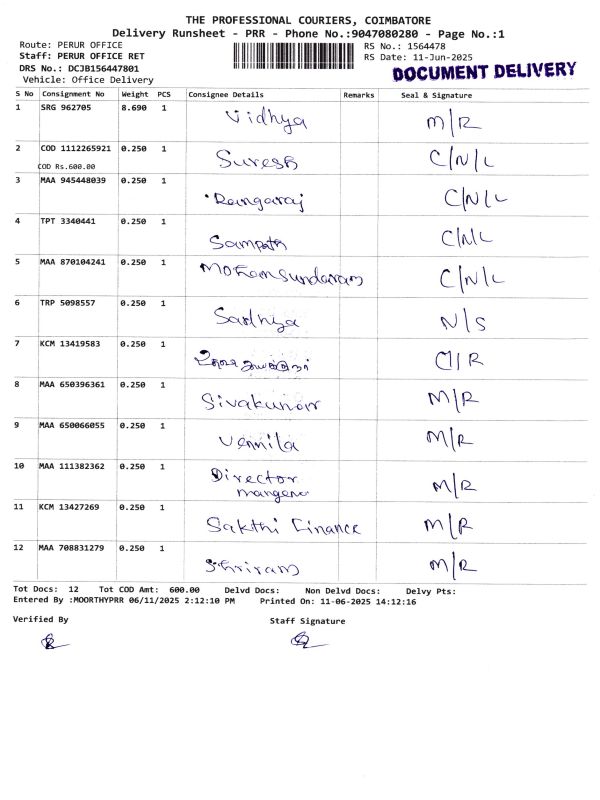 THE PROFESSIONAL COURIERS, COIMBATORE
Delivery Runsheet - PRR - Phone No.:9047080280 - Page No.:1
Route: PERUR OFFICE
RS No.: 1564478
Staff: PERUR OFFICE RET
RS Date: 11-Jun-2025
DRS No.: DCJB156447801
DOCUMENT DELIVERY
Vehicle: Office Delivery
S No Consignment No Weight PCS Consignee Details Remarks Seal & Signature
1 SRG 962705 8.690 1 Vidhya M/R
2 COD 1112265921 0.250 1 Suresh C/N/L
COD Rs.600.00
3 MAA 945448039 0.250 1 Rangaraj C/N/L
4 TPT 3340441 0.250 1 Sampath C/N/L
5 MAA 870104241 0.250 1 Mohamsundaram C/N/L
6 TRP 5098557 0.250 1 Sadhya N/S
7 KCM 13419583 0.250 1
8 MAA 650396361 0.250 1 Sivakumar M/R
9 MAA 650066055 0.250 1 Vennila M/R
10 MAA 111382362 0.250 1 Director M/R
11 KCM 13427269 0.250 1 Sakthi Finance M/R
12 MAA 708831279 0.250 1 Shriram M/R
Tot Docs: 12 Tot COD Amt: 600.00 Delvd Docs: Non Delvd Docs: Delvy Pts:
Entered By :MOORTHYPRR 06/11/2025 2:12:10 PM Printed On: 11-06-2025 14:12:16
Verified By Staff Signature